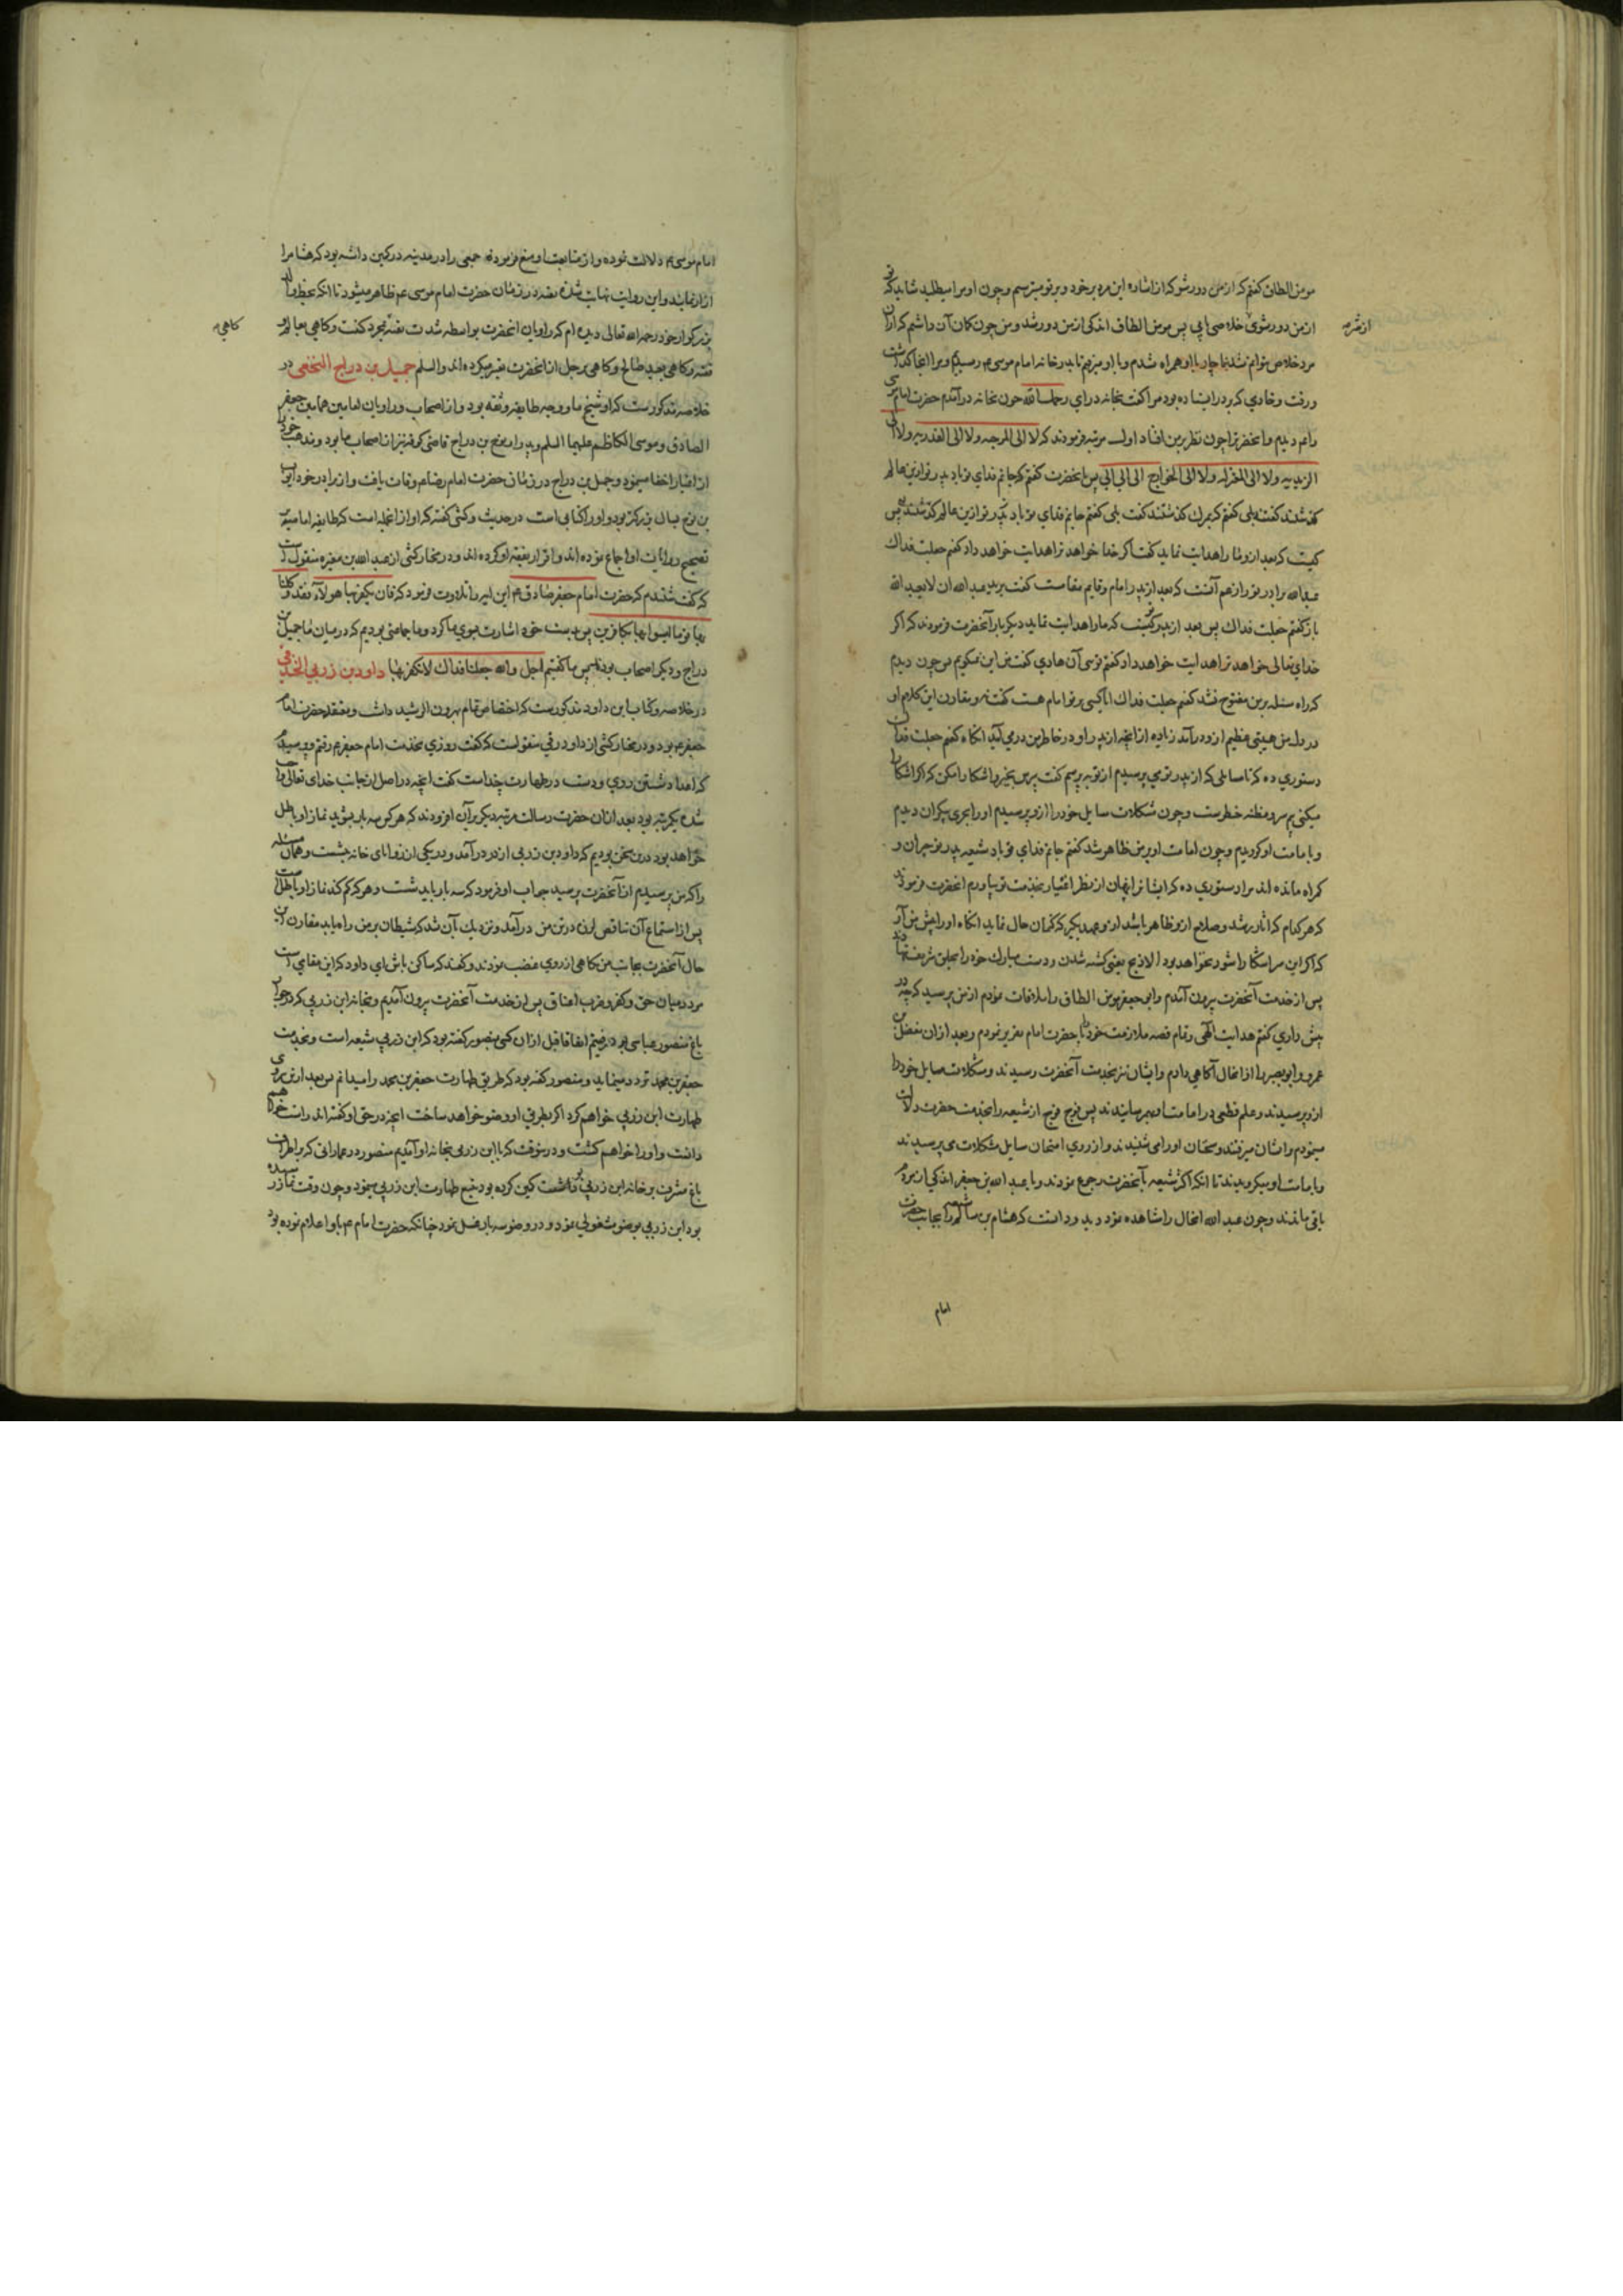 مومن الطاق کفتم که از من دور شو که از اشاره این مرد برخود و بر تو میترسم و چون او مرا میطلبد شاید که تو
از من دور شوی خلاصی یابی پس مومن الطاق اندکی از من دور شد و من چون کمان آن داشتم که از آن
از شر
مرد خلاص نتوانم شد بناچار با او همراه شدم و با او میرفتم تا بدر خانه امام موسی ع رسیدیم و مرا آنجا گذاشت
و رفت و خادمی که بر در ایستاده بود مرا گفت بخانه درآی رحمک الله چون بخانه درآمدم حضرت امام موسی
را ع دیدم و آنحضرت را چون نظر بر من افتاد اول مرتبه فرمودند که لا الی المرجیه ولا الی القدریه ولا الی
الزیدیه ولا الی المعتزله ولا الی الخوارج الی الی الی پس بآنحضرت کفتم که جانم فدای تو باد پدر تو ازین عالم
کذشتند کفت بلی کفتم که بمرک کذشتند کفت بلی کفتم جانم فدای تو باد پدر تو ازین عالم کذشتند پس
کیست که بعد ازو ما را هدایت نماید کفت اکر خدا خواهد ترا هدایت خواهد داد کفتم جعلت فداک
عبدالله برادر تو را زعم آنست که بعد از پدر امام و قایم مقامست کفت یرید عبدالله ان لا یعبد الله
باز کفتم جعلت فداک پس بعد از پدر تو کیست که ما را هدایت نماید دیکر بار آنحضرت فرمودند که اکر
خدای تعالی خواهد ترا هدایت خواهد داد کفتم توئی آن هادی کفت من این نمیکویم پس چون دیدم
که راه مسئله بر من مفتوح نشد کفتم جعلت فداک آیا کسی بر تو امام هست کفت نه و مقارن این کلام او
در دل من هیبتی عظیم ازو درآمد زیاده از آنچه از پدر او در خاطر من درمی آید انکاه کفتم جعلت فداک
دستوری ده که تا مسایلی که از پدر تو می پرسیدم از تو بپرسم کفت بپرس
میکنی و مظنه خطرست و چون مشکلات مسایل خود را ازو پرسیدم او را بحری بیکران دیدم
و بامامت او کرویدم و چون امامت او بر من ظاهر شد کفتم جانم فدای تو باد شیعه پدر تو حیران و
کمراه مانده اند مرا دستوری ده که ایشانرا پنهان از نظر اغیار بخدمت تو بیاورم آنحضرت فرمودند
که هر کدام که آثار رشد و صلاح ازو ظاهر باشد ازو عهد بکیر که کتمان حال نماید انکاه او را پیش من آر
که اکر این سر آشکارا شود نخواهد بود الا ذبح یعنی کشته شدن و دست مبارک خود را بحلق شریف نهادند
پس از خدمت آنحضرت بیرون آمدم و ابی جعفر مومن الطاق را ملاقات نمودم از من پرسید که چه در
پیش داری کفتم هدایت الهی و تمام قصه ملازمت خود را با حضرت امام تقریر نمودم و بعد از آن مفضل بن
عمر و ابو بصیر را از انحال آکاهی دادم و ایشان نیز بخدمت آنحضرت رسیدند و مشکلات مسایل خود را
ازو پرسیدند و علم قطعی در امامت او بهم رسانیدند پس فوج فوج از شیعه را بخدمت حضرت دلالت
مینمودم و ایشان میرفتند و سخنان او را می شنیدند و از روی امتحان مسایل مشکلات می پرسیدند
و بامامت او میکرویدند تا انکه اکثر شیعه بآنحضرت رجوع نمودند و با عبدالله بن جعفر اندکی از مردم
باقی ماندند و چون عبدالله انحال را مشاهده نمود و دانست که هشام بن سالم شیعه را بجانب حضرت
امام
امام موسی ع دلالت نموده و از متابعت او منع فرموده جمعی را در مدینه در کمین داشته بود که هشام را
آزار نمایند و این روایت نهایت شده در زمان حضرت امام موسی ع ظاهر میشود تا انکه بخط والد
بزرکوار خود رحمه الله تعالی دیده ام که راویان آنحضرت بواسطه شدت تقیه کنت و کاهی بعالم از
کاهی به
تقیه و کاهی بعبد صالح و کاهی برجل از آنحضرت تعبیر میکرده اند والسلام جمیل بن دراج النخعی در
خلاصه مذکورست که او شیخ ما و وجه طایفه و ثقه بود و از اصحاب و راویان امامین همامین جعفر
الصادق و موسی الکاظم علیهما السلام و برادر نوح بن دراج قاضی کوفه نیز از اصحاب ما بود و مذهب خود
از اغیار اخفا مینمود و جمیل بن دراج در زمان حضرت امام رضا ع وفات یافت و از برادر خود ایوب
بن نوح بسال بزرکتر بود و او را کتابی است در حدیث و کشی کفته که او از انجمله است که طایفه امامیه بر
تصحیح روایات او اجماع نموده اند و اقرار بفقه او کرده اند و در مختار کشی از عبدالله بن مغیره منقول است
که کفت شنیدم که حضرت امام جعفر صادق ع این آیه را تلاوت فرمود که فان یکفر بها هولاء فقد وکلنا
بها قوما لیسوا بها بکافرین پس بدست خود اشارت بسوی ما کرد و ما جماعتی بودیم که در میان ما جمیل بن
دراج و دیکر اصحاب بودند پس ما کفتیم اجل والله جعلنا فداک لا نکفر بها داود بن زربی الخندفی
در خلاصه و کتاب ابن داود مذکورست که اختصاص تمام بهرون الرشید داشت و معتقد حضرت امام
جعفر ع بود و در مختار کشی از داود رقی منقولست که کفت روزی بخدمت امام جعفر ع رفتم و پرسیدم
که اعداد شستن روی و دست در طهارت چند است کفت آنچه در اصل از جانب خدای تعالی واجب
شده یک مرتبه بود بعد از آن حضرت رسالت مرتبه دیکر بر آن افزودند که هر کس سه بار بشوید نماز او باطل
خواهد بود درین سخن بودیم که داود بن زربی از در درآمد و در یکی از زوایای خانه بنشست و همان مسئله
را که من پرسیدم از آنحضرت پرسید جواب او فرمود که سه بار باید شست و هر که کم کند نماز او باطل است
پس از استماع آن تناقض لرزه در تن من درآمد و نزدیک آن شد که شیطان بر من راه یابد مقارن این
حال آنحضرت بجانب من نکاهی از روی غضب نمودند و کفتند که ساکن باش ای داود که این مقامی است
مردد میان حق و کفر و ضرب اعناق پس از خدمت آنحضرت بیرون آمدیم و بخانه ابن زربی که در جوار
باغ منصور عباسی بود رفتیم اتفاقا قبل از آن کسی بمنصور کفته بود که ابن زربی شیعه است و بخدمت
جعفر بن محمد تردد مینماید و منصور کفته بود که طریق طهارت جعفر بن محمد را میدانم پس بعد ازین بروی
طهارت ابن زربی خواهم کرد اکر بطریق او وضو خواهد ساخت آنچه در حق او کفته اند راست خواهم
دانست و او را خواهم کشت و درینوقت که با ابن زربی بخانه او آمدیم منصور در عماراتی که بر اطراف
باغ مشرف بر خانه ابن زربی بود کمین کرده بود تتبع طهارت ابن زربی مینمود و چون وقت نماز رسیده
بود ابن زربی بوضو مشغولی نمود و در وضو سه بار غسل نمود چنانکه حضرت امام ع باو اعلام نموده بود